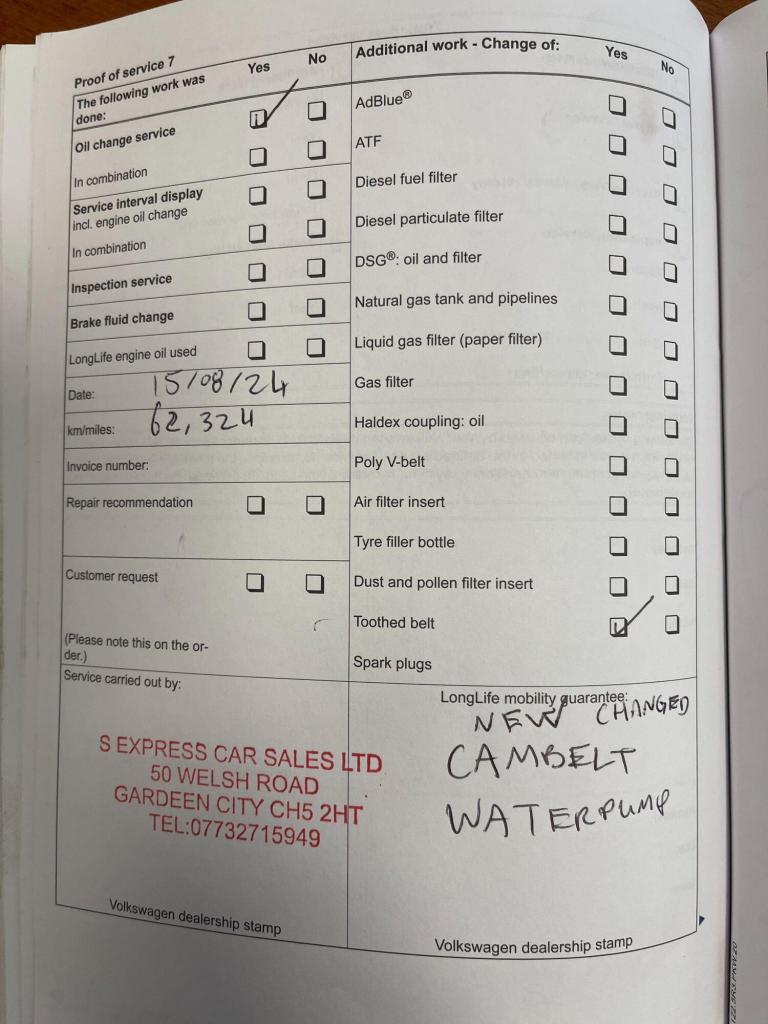 Proof of service 7
Yes
No
The following work was
done:
Oil change service
In combination
Service interval display
incl. engine oil change
In combination
Inspection service
Brake fluid change
LongLife engine oil used
Date: 15/08/24
km/miles: 62,324
Invoice number:
Repair recommendation
Customer request
(Please note this on the or-
der.)
Service carried out by:
S EXPRESS CAR SALES LTD
50 WELSH ROAD
GARDEEN CITY CH5 2HT
TEL:07732715949
Volkswagen dealership stamp
Additional work - Change of:
Yes
No
AdBlue®
ATF
Diesel fuel filter
Diesel particulate filter
DSG®: oil and filter
Natural gas tank and pipelines
Liquid gas filter (paper filter)
Gas filter
Haldex coupling: oil
Poly V-belt
Air filter insert
Tyre filler bottle
Dust and pollen filter insert
Toothed belt
Spark plugs
LongLife mobility guarantee:
NEW CHANGED
CAMBELT
WATERPUMP
Volkswagen dealership stamp